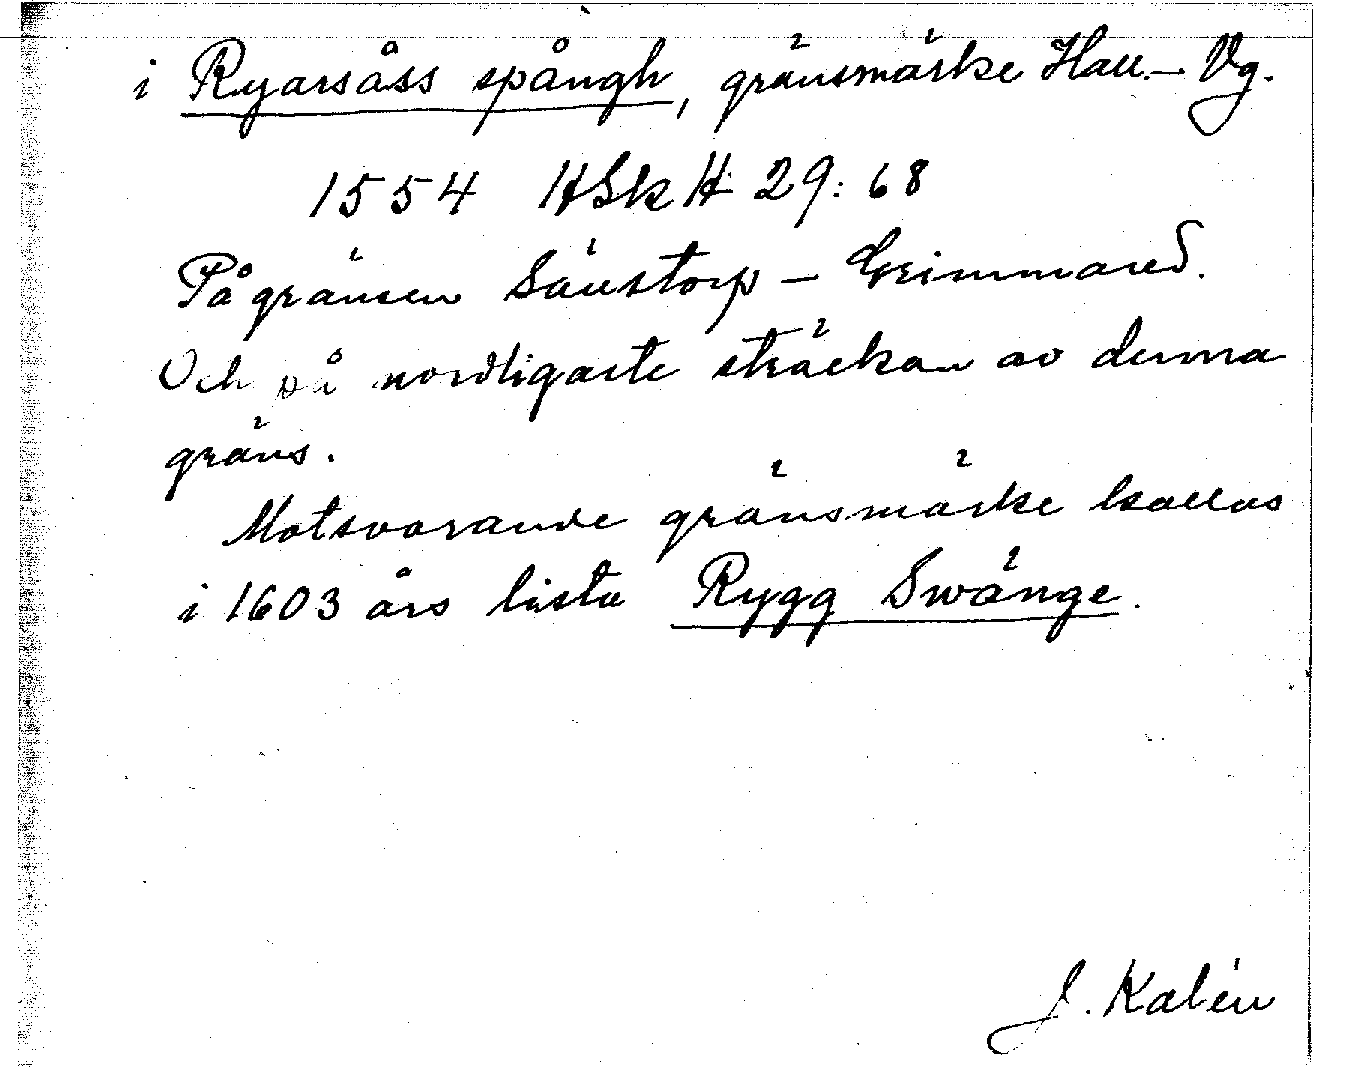 i Ryarsåss spångh, gränsmärke Hall.- Vg.
1554 HSkH 29:68
På gränsen Sänstorp - Grimmared.
Och på nordligaste sträckan av denna
gräns.
Motsvarande gränsmärke kallas
i 1603 års lista Rygg Swänge.
J. Kalén